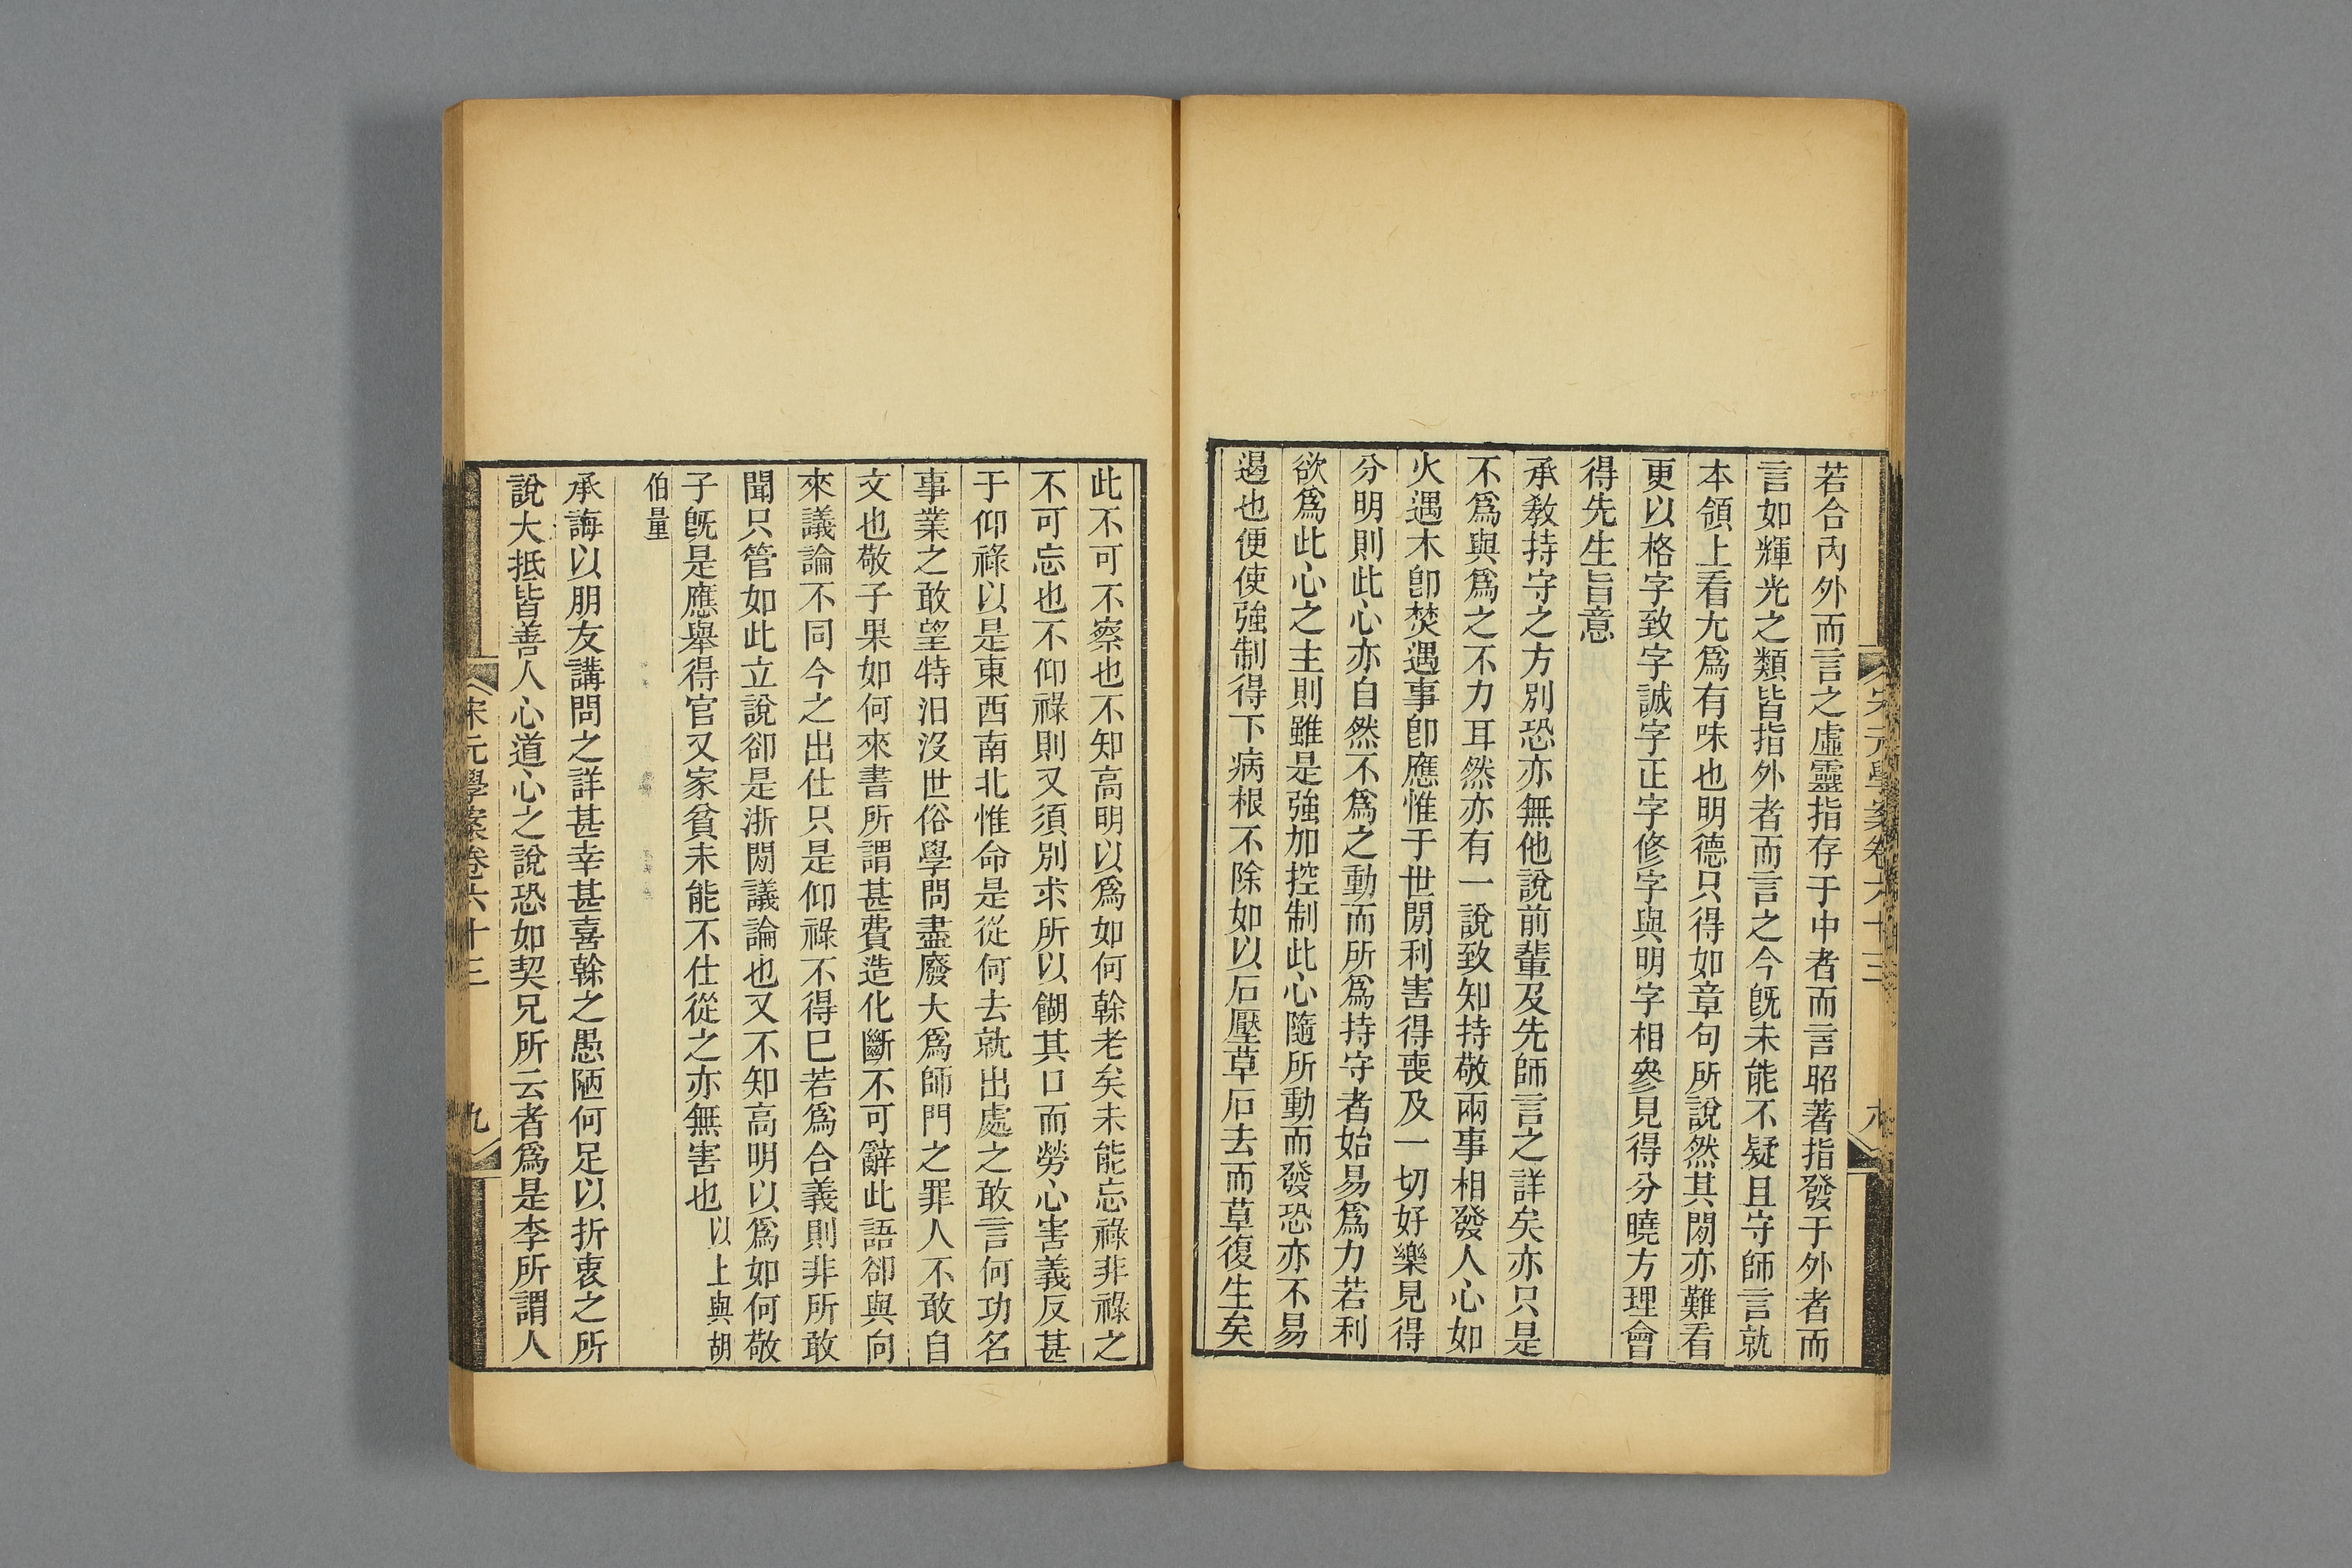 若合內外而言之虛靈指存于中者而言昭著指發于外者而
言如輝光之類皆指外者而言之今旣未能不疑且守師言就
本領上看尤爲有味也明德只得如章句所說然其閒亦難看
更以格字致字誠字正字修字與明字相參見得分曉方理會
得先生旨意
承敎持守之方別恐亦無他說前輩及先師言之詳矣亦只是
不爲與爲之不力耳然亦有一說致知持敬兩事相發人心如
火遇木卽焚遇事卽應惟于世閒利害得喪及一切好樂見得
分明則此心亦自然不爲之動而所爲持守者始易爲力若利
欲爲此心之主則雖是強加控制此心隨所動而發恐亦不易
遏也便使強制得下病根不除如以石壓草石去而草復生矣
宋元學案卷六十三
此不可不察也不知高明以爲如何榦老矣未能忘祿非祿之
不可忘也不仰祿則又須別求所以餬其口而勞心害義反甚
于仰祿以是東西南北惟命是從何去就出處之敢言何功名
事業之敢望特汨沒世俗學問盡廢大爲師門之罪人不敢自
文也敬子果如何來書所謂甚費造化斷不可辭此語卻與向
來議論不同今之出仕只是仰祿不得已若爲合義則非所敢
聞只管如此立說卻是浙閒議論也又不知高明以爲如何敬
子旣是應舉得官又家貧未能不仕從之亦無害也以上與胡
伯量
承誨以朋友講問之詳甚幸甚喜榦之愚陋何足以折衷之所
說大抵皆善人心道心之說恐如契兄所云者爲是李所謂人
宋元學案卷六十三
九